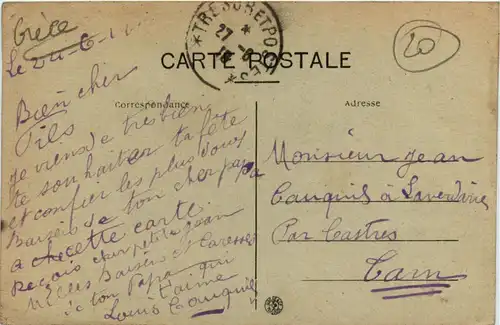 Grèce
Le 24-6-1
20
* TRESOR ET POSTES *
27
CARTE POSTALE
Correspondance
Adresse
Bien cher
Fils
je viens de tres bien
te souhaiter ta fête
et confier les plus doux
Baisers de ton cher papa
a cette carte.
Reçois cher petit jean
Milles Baisers et Caresses
de ton Papa qui
t'aime
Louis Cauquil
Monsieur jean
Cauquil à
Par Castres
Tarn